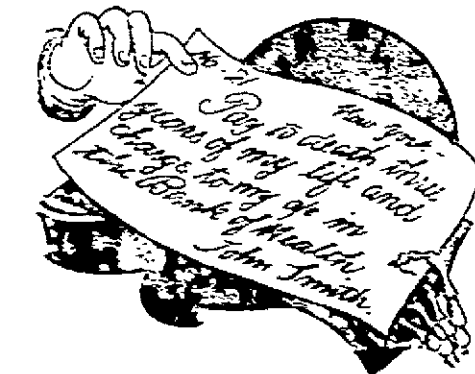 No 21
New York
Pay to death three
years of my life and
charge to my a/c in
the Bank of Health
John Smith.